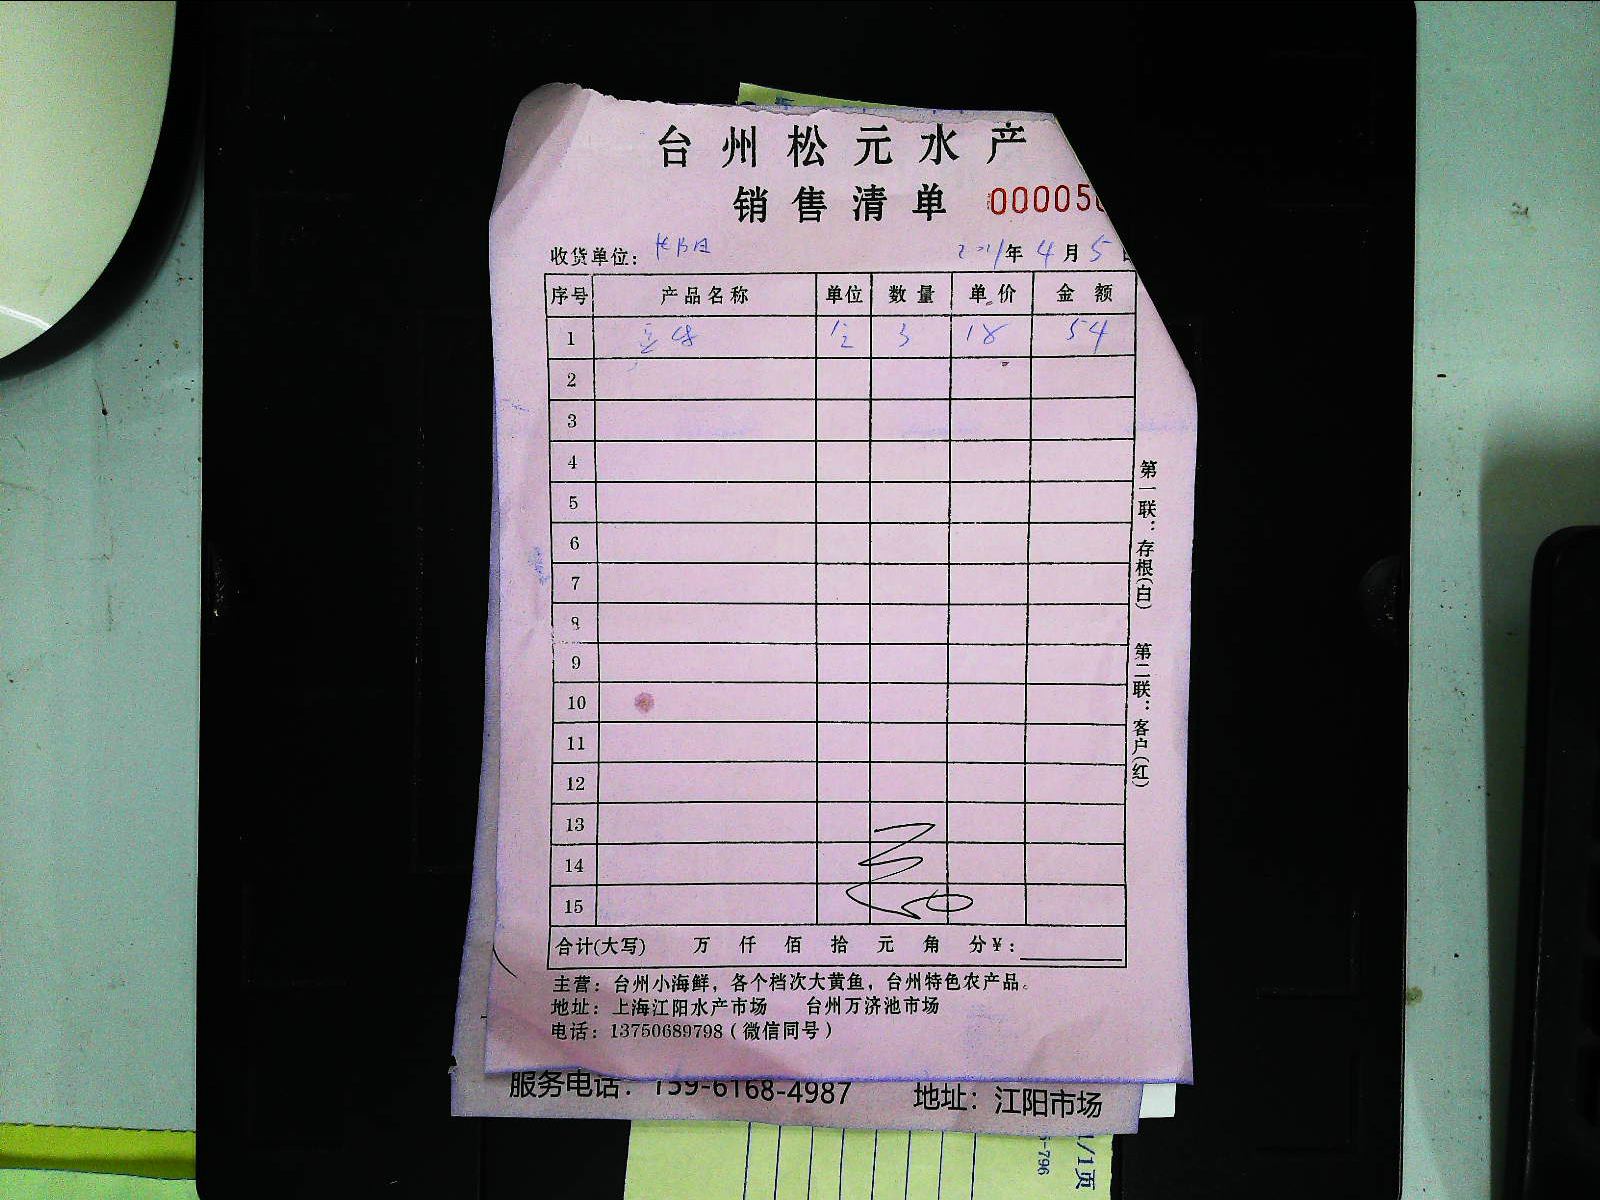 台州松元水产
销售清单 000005
收货单位： 2021年4月5日
序号 产品名称 单位 数量 单价 金额
1 3 18 54
2
3
4
5
6
7
8
9
10
11
12
13
14
15
合计(大写) 万 仟 佰 拾 元 角 分¥：
主营：台州小海鲜，各个档次大黄鱼，台州特色农产品。
地址：上海江阳水产市场 台州万济池市场
电话：13750689798（微信同号）
第一联：存根(白) 第二联：客户(红)
服务电话：159-6168-4987 地址：江阳市场
1/1页
-796